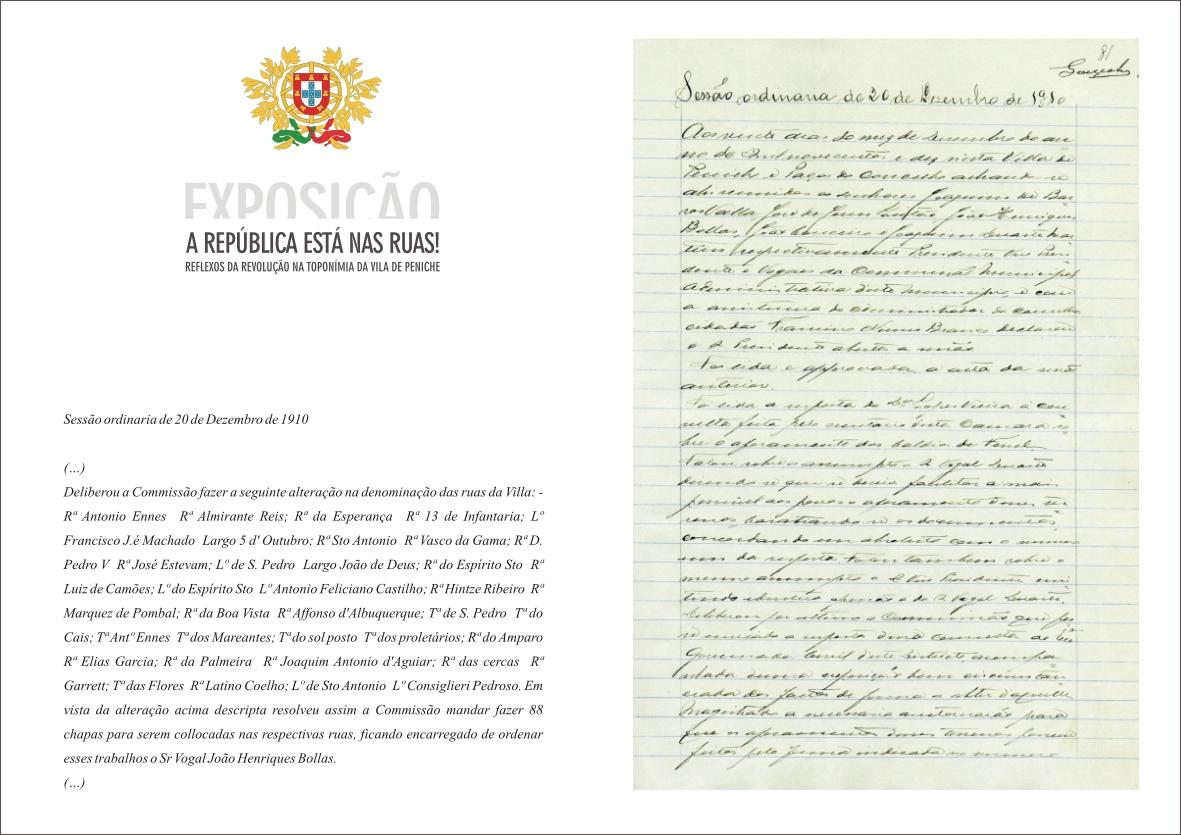 EXPOSIÇÃO
A REPÚBLICA ESTÁ NAS RUAS!
REFLEXOS DA REVOLUÇÃO NA TOPONÍMIA DA VILA DE PENICHE
Sessão ordinaria de 20 de Dezembro de 1910
(...)
Deliberou a Commissão fazer a seguinte alteração na denominação das ruas da Villa: -
Rª Antonio Ennes Rª Almirante Reis; Rª da Esperança Rª 13 de Infantaria; Lº
Francisco J.é Machado Largo 5 d' Outubro; Rª Sto Antonio Rª Vasco da Gama; Rª D.
Pedro V Rª José Estevam; Lº de S. Pedro Largo João de Deus; Rª do Espírito Sto Rª
Luiz de Camões; Lº do Espírito Sto Lº Antonio Feliciano Castilho; Rª Hintze Ribeiro Rª
Marquez de Pombal; Rª da Boa Vista Rª Affonso d'Albuquerque; Tª de S. Pedro Tª do
Cais; Tª Antº Ennes Tª dos Mareantes; Tª do sol posto Tª dos proletários; Rª do Amparo
Rª Elias Garcia; Rª da Palmeira Rª Joaquim Antonio d'Aguiar; Rª das cercas Rª
Garrett; Tª das Flores Rª Latino Coelho; Lº de Sto Antonio Lº Consiglieri Pedroso. Em
vista da alteração acima descripta resolveu assim a Commissão mandar fazer 88
chapas para serem collocadas nas respectivas ruas, ficando encarregado de ordenar
esses trabalhos o Sr Vogal João Henriques Bollas.
(...)
81
Sessão ordinaria de 20 de Dezembro de 1910
Aos vinte dias do mez de Dezembro do an
no de mil novecentos e dez nesta Villa de
Peniche e Paços do Concelho achando se
ahi reunidos os senhores Joaquim de Bar
João Henriques
Bollas, e Joaquim Duarte
respectivamente Presidente Vice Presi
dente e Vogaes da Commissão Municipal
Administrativa deste Municipio, e com
a assistencia do administrador do concelho
cidadão Nunes Branco declarou
o Presidente aberta a sessão
Foi lida e approvada a acta da sessão
anterior.
Foi lida a resposta do á con
sulta feita pelo secretario desta Camara so
bre o aforamento dos baldios de Ferrel.
Falou sobre o assumpto o Vogal Duarte
dizendo se que se devia facilitar o mais
possivel aos povos o aforamento
os documentos,
concordando em absoluto com o
da resposta. Falou tambem sobre o
mesmo assumpto o Vice Presidente
Vogal Duarte.
Deliberou por ultimo a Commissão que fos
se enviada a resposta consulta ao
Governador Civil deste districto, acompa
nhada duma exposição bem circunstan
ciada dos factos de forma a obter daquelle
Magistrado a necessaria auctorisação para
que os aforamentos terrenos
feitos pela forma indicada